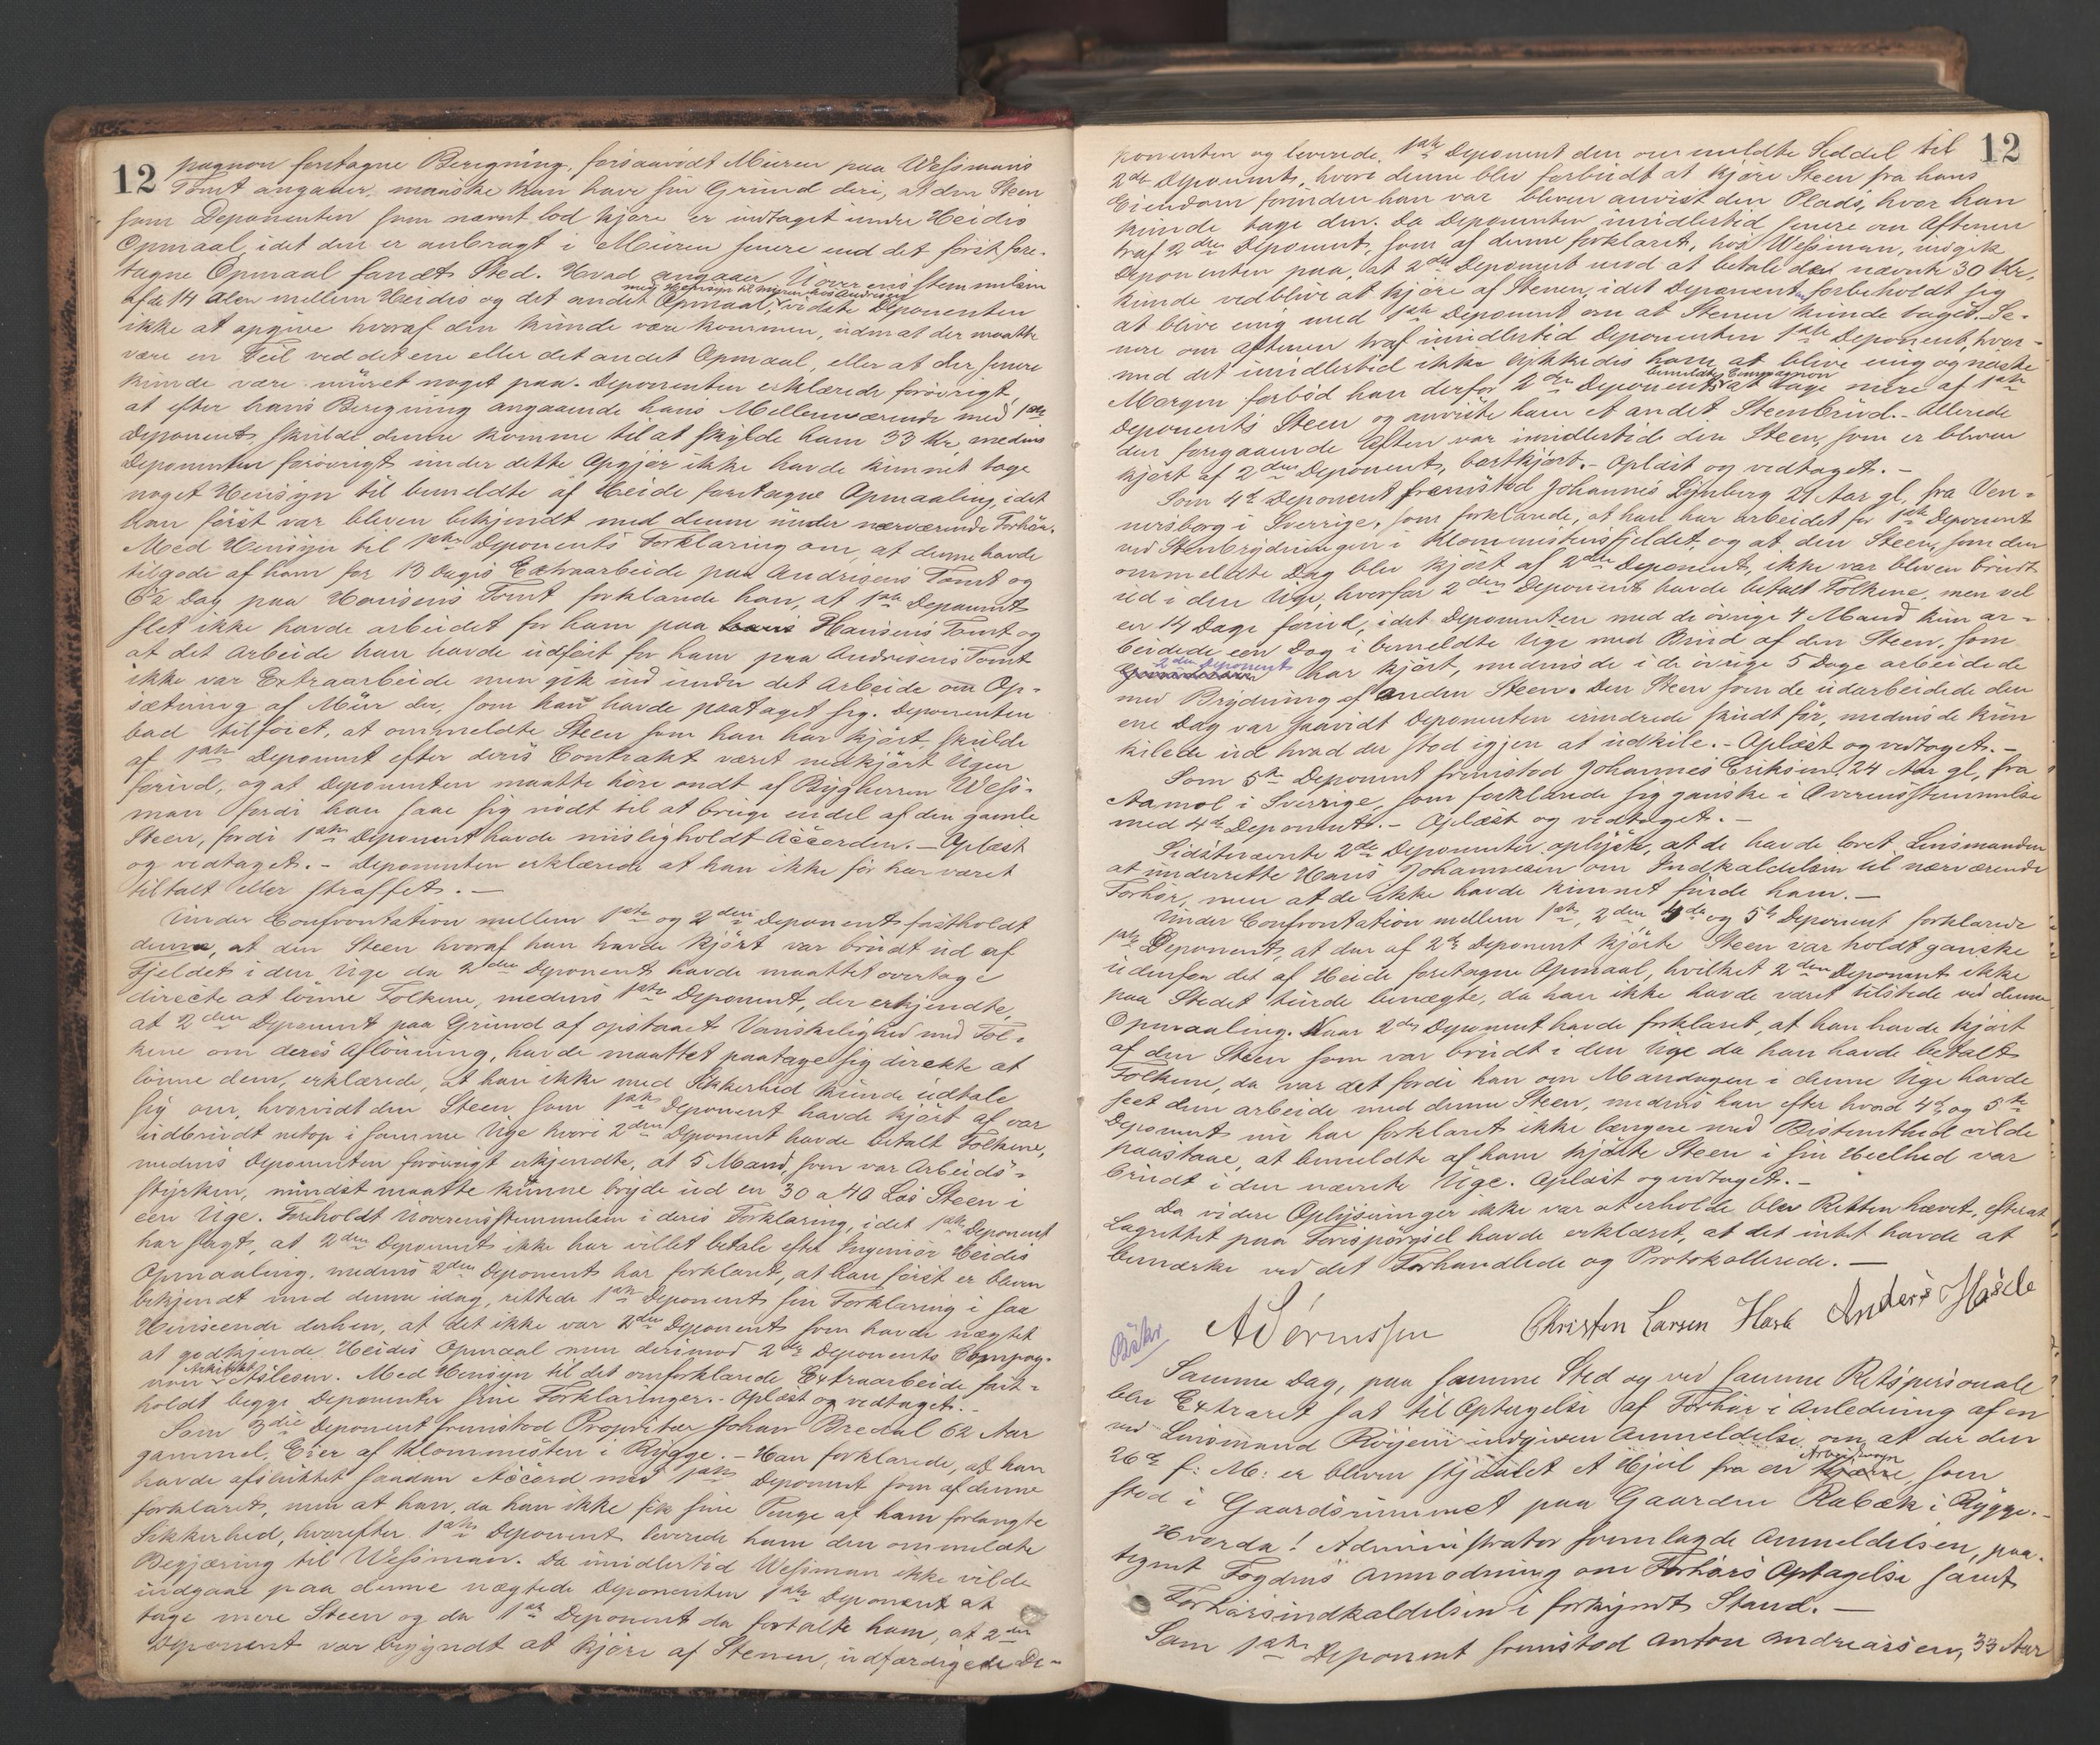 12
pagnon foretagne Beregning, forsaavidt Muren paa Wessmans
Tomt angaaer, maaske kan have sin Grund deri, at den Steen
som Deponenten som nævnt lod kjøre er indtaget under Heides
Opmaal, idet den er anbragt i Muren senere end det først fore-
tagne Opmaal fandt Sted. Hvad angaaer Uoverensstemmelsen
af de 14 Alen mellem Heides og det andet Opmaal, med Hensyn til Muren hos Andresen vidste Deponenten
ikke at opgive hvoraf den kunde være kommen, uden at der maatte
være en Feil ved det ene eller det andet Opmaal, eller at der senere
kunde være muret noget paa. Deponenten erklærede forøvrigt,
at efter hans Beregning angaaende hans Mellemværende med 1ste
Deponent, skulde denne komme til at skylde ham 33 Kr, medens
Deponenten forøvrigt under dette Opgjør ikke havde kunnet tage
noget Hensyn til bemeldte af Heide foretagne Opmaaling, idet
han først var bleven bekjendt med denne under nærværende Forhør.
Med Hensyn til 1ste Deponents Forklaring om, at denne havde
tilgode af ham for 13 Dages Extraarbeide paa Andresens Tomt og
6½ Dag paa Hansens Tomt forklarede han, at 1ste Deponent
slet ikke havde arbeidet for ham paa hans Hansens Tomt og
at det Arbeide han havde udført for ham paa Andresens Tomt
ikke var Extraarbeide men gik ind under det Arbeide om Op-
sætning af Mur der, som han havde paataget sig. Deponenten
bad tilføiet, at ommeldte Steen som han har kjørt, skulde
af 1ste Deponent efter deres Contrakt været nedkjørt Ugen
forud, og at Deponenten maatte høre ondt af Bygherren Wess-
man fordi han saae sig nødt til at bruge endel af den gamle
Steen, fordi 1ste Deponent havde misligholdt Accorden. – Oplæst
og vedtaget. – Deponenten erklærede at han ikke før har været
tiltalt eller straffet. –
Under Confrontation mellem 1ste og 2den Deponent fastholdt
denne, at den Steen hvoraf han havde kjørt var brudt ud af
Fjeldet i den Uge da 2den Deponent havde maattet overtage
directe at lønne Folkene, medens 1ste Deponent, der erkjendte,
at 2den Deponent paa Grund af opstaaet Vanskelighed med Fol-
kene om deres Aflønning, havde maattet paatage sig direkte at
lønne dem, erklærede, at han ikke med Sikkerhed kunde udtale
sig om, hvorvidt den Steen som 1ste Deponent havde kjørt af var
udbrudt netop i samme Uge hvori 2den Deponent havde betalt Folkene,
medens Deponenten forøvrigt erkjendte, at 5 Mand, som var Arbeids-
styrken, mindst maatte kunne bryde ud en 30 a 40 Læs Steen i
een Uge. Foreholdt Uoverensstemmelsen i deres Forklaring, idet 1ste Deponent
har sagt, at 2den Deponent ikke har villet betale efter Ingeniør Heides
Opmaaling, medens 2den Deponent har forklaret, at han først er bleven
bekjendt med denne idag, rettede 1ste Deponent sin Forklaring i saa
Henseende derhen, at det ikke var 2den Deponent som havde nægtet
at godkjende Heides Opmaal men derimod 2den Deponents Compag-
non Arkitekt Aslesen. Med Hensyn til det omforklarede Extraarbeide fast-
holdt begge Deponenter sine Forklaringer. – Oplæst og vedtaget. –
Som 3die Deponent fremstod Proprietær Johan Bredal 62 Aar
gammel, Eier af Klommesten i Rygge. – Han forklarede, at han
havde afsluttet saadan Accord med 1ste Deponent som af denne
forklaret, men at han, da han ikke fik sine Penge af ham forlangte
Sikkerhed, hvorefter 1ste Deponent leverede ham den ommeldte
Begjæring til Wessman. Da imidlertid Wessman ikke vilde
indgaae paa denne nægtede Deponenten 1ste Deponent at
tage mere Steen og da 1ste Deponent da fortalte ham, at 2den
Deponent var begyndt at kjøre af Stenen, udfærdigede De-
12
ponenten og leverede 1ste Deponent den ommeldte Seddel til
2den Deponent, hvori denne blev forbudt at kjøre Steen fra hans
Eiendom forinden han var bleven anvist den Plads, hvor han
kunde tage den. Da Deponenten imidlertid senere om Aftenen
traf 2den Deponent, som af denne forklaret, hos Wessman, indgik
Deponenten paa, at 2den Deponent mod at betale de nævnte 30 Kr,
kunde vedblive at kjøre af Stenen, idet Deponenten forbeholdt sig
at blive enig med 1ste Deponent om at Stenen kunde tages. Se-
nere om Aftenen traf imidlertid Deponenten 1ste Deponent, hvor-
med det imidlertid ikke lykkedes ham at blive enig og næste
Morgen forbød han derfor 2den Deponents bemeldte Compagnon at tage mere af 1ste
Deponents Steen og anviste ham et andet Steenbrud. – Allerede
den foregaaende Aften var imidlertid den Steen, som er bleven
kjørt af 2den Deponent, bortkjørt. – Oplæst og vedtaget. –
Som 4de Deponent fremstod Johannes Lynberg 21 Aar gl, fra Ven-
nersborg i Sverrige, som forklarede, at han har arbeidet for 1ste Deponent
ved Stenbrydningen i Klommestensfjeldet, og at den Steen, som den
ommeldte Dag blev kjørt af 2den Deponent, ikke var bleven brudt
ud i den Uge, hvorfor 2den Deponent havde betalt Folkene, men vel
en 14 Dage forud, idet Deponenten med de øvrige 4 Mand kun ar-
beidede een Dag i bemeldte Uge med Brud af den Steen, som
2den Deponent har kjørt, medens de i de øvrige 5 Dage arbeidede
med Brydning af anden Steen. Den Steen som de udarbeidede den
ene Dag var saavidt Deponenten erindrede skudt før, medens de kun
kilede ud hvad der stod igjen at udkile. – Oplæst og vedtaget. –
Som 5te Deponent fremstod Johannes Eriksen, 24 Aar gl, fra
Aamol i Sverrige, som forklarede sig ganske i Overensstemmelse
med 4de Deponent. – Oplæst og vedtaget. –
Sidstnævnte 2de Deponenter oplyste, at de havde lovet Lensmanden
at underrette Hans Johannesen om Indkaldelsen til nærværende
Forhør, men at de ikke havde kunnet finde ham. –
Under Confrontation mellem 1ste, 2den 4de og 5te Deponent forklarede
1ste Deponent, at den af 2den Deponent kjørte Steen var holdt ganske
udenfor det af Heide foretagne Opmaal, hvilket 2den Deponent ikke
paa Stedet turde benægte, da han ikke havde været tilstede ved denne
Opmaaling. Naar 2den Deponent havde forklaret, at han havde kjørt
af den Steen som var brudt i den Uge da han havde betalt
Folkene, da var det fordi han om Mandagen i denne Uge havde
seet dem arbeide med denne Steen, medens han efter hvad 4de og 5te
Deponent nu har forklaret ikke længere med Bestemthed vilde
paastaae, at bemeldte af ham kjørte Steen i sin Heelhed var
brudt i den nævnte Uge. Oplæst og vedtaget. –
Da videre Oplysninger ikke var at erholde blev Retten hævet, efterat
Lagrettet paa Forespørgsel havde erklæret, at det intet havde at
bemærke ved det Forhandlede og Protokollerede. –
Christen Larsen Hasle Anders Hasle
Samme Dag, paa samme Sted og ved samme Retspersonale
blev Extraret sat til Optagelse af Forhør i Anledning af en
ved Lensmand Røyem indgiven Anmeldelse om, at der den
26de f: M: er bleven stjaalet et Hjul fra en Arbeidsvogn, som
stod i Gaardsrummet paa Gaarden Rabæk i Rygge. –
Hvorda! Administrator fremlagde Anmeldelsen, paa-
tegnet Fogdens Anmodning om Forhørs Optagelse samt
Forhørsindkaldelsen i forkyndt Stand. –
Som 1ste Deponent fremstod Anton Andreassen, 33 Aar